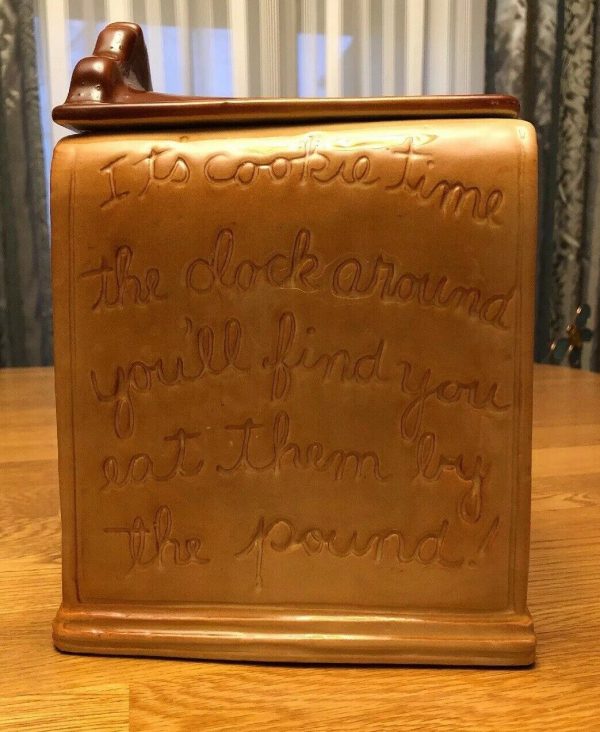 It's cookie time
the clock around
you'll find you
eat them by
the pound!